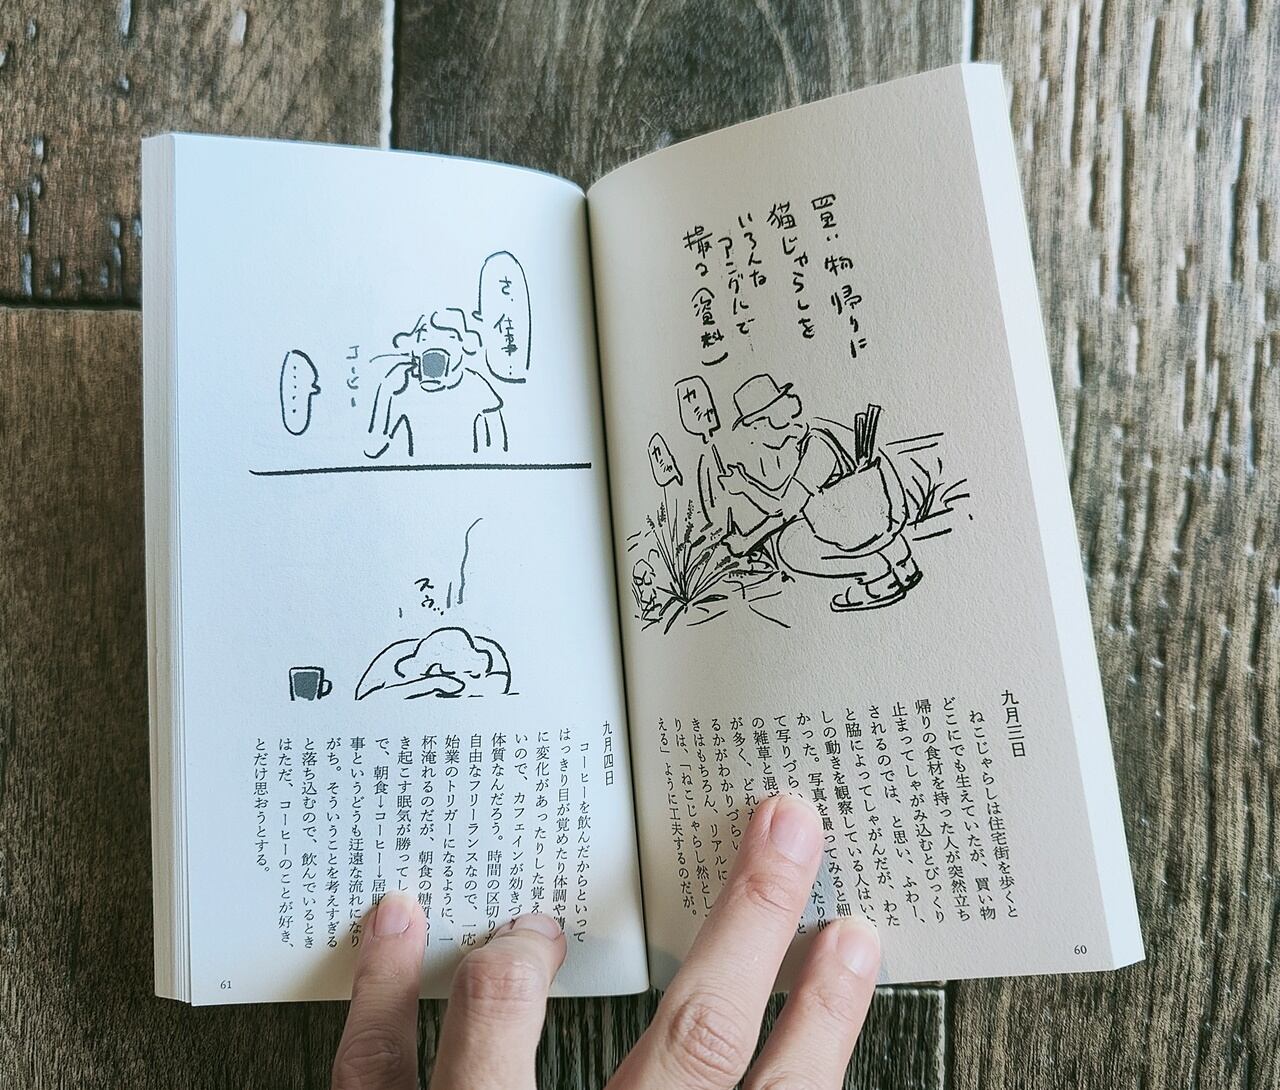 買い物帰りに
猫じゃらしを
いろんな
アングルで…
撮る(資料)
カシャ
カシャ
九月三日
ねこじゃらしは住宅街を歩くと
どこにでも生えていたが、買い物
帰りの食材を持った人が突然立ち
止まってしゃがみ込むとびっくり
されるのでは、と思い、ふわー、
と脇によってしゃがんだが、わた
しの動きを観察している人はいな
かった。写真を撮ってみると細
て写りづらい いたり
の雑草と混ざ と
が多く、どれ
るかがわかりづらい
きはもちろん、リアルに
りは、「ねこじゃらし然とし
える」ように工夫するのだが。
60
さ、仕事…
コーヒー
……
スゥ…
九月四日
コーヒーを飲んだからといって
はっきり目が覚めたり体調や
に変化があったりした覚え
いので、カフェインが効きづ
体質なんだろう。時間の区切りが
自由なフリーランスなので、一応
始業のトリガーになるように、一
杯淹れるのだが、朝食の糖質の
き起こす眠気が勝ってし
で、朝食→コーヒー→居眠
事というどうも迂遠な流れになり
がち。そういうことを考えすぎる
と落ち込むので、飲んでいるとき
はただ、コーヒーのことが好き、
とだけ思おうとする。
61